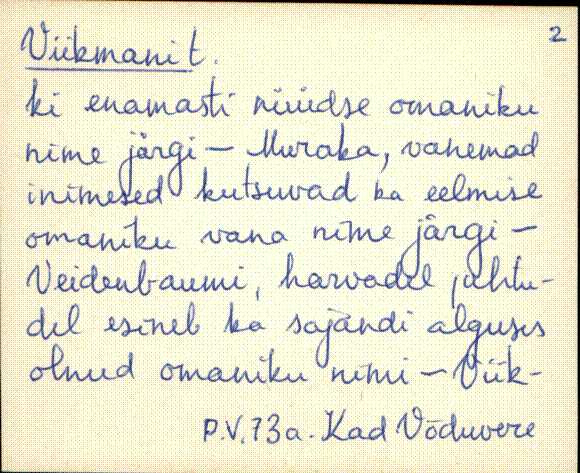 2
Viikmani t.
ki enamasti nüüdse omaniku
nime järgi – Muraka, vanemad
inimesed kutsuvad ka eelmise
omaniku vana nime järgi –
Veidenbaumi, harvadel juhtu-
del esineb ka sajandi alguses
olnud omaniku nimi – Viik-
P.V. 73 a. Kad Võduvere